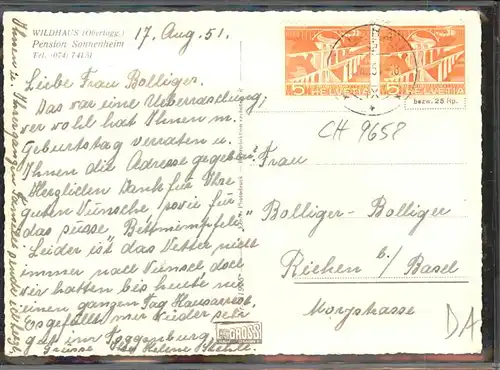 WILDHAUS (Obertogg.)
Pension Sonnenheim
Tel. (074) 7 41 51
17. Aug. 51.
Liebe Frau Bolliger,
Das war eine Ueberraschung,
wer wohl hat Ihnen m.
Geburtstag verraten u.
Ihnen die Adresse gegeben?
Herzlichen Dank für Ihre
guten Wünsche sowie für
das süsse
Leider ist das Wetter nicht
immer nach Wunsch, doch
wir hatten bis heute nie
einen ganzen Tag Hausarrest.
Es gefällt mir wieder sehr
gut im Toggenburg.
Grüsse Helene
Ihnen u. Ihren
HELVETIA HELVETIA
5 5
bezw. 25 Rp.
CH 9658
Frau
Bolliger-Bolliger
Riehen b/ Basel
strasse
DA
GROSS